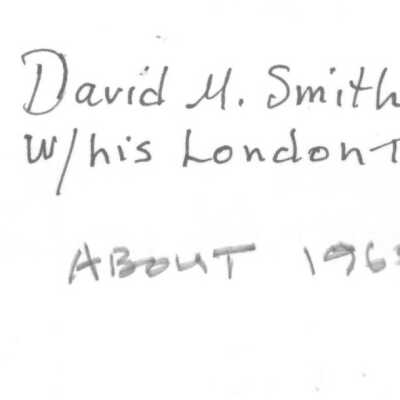 David M. Smith
W/his London
ABOUT 196